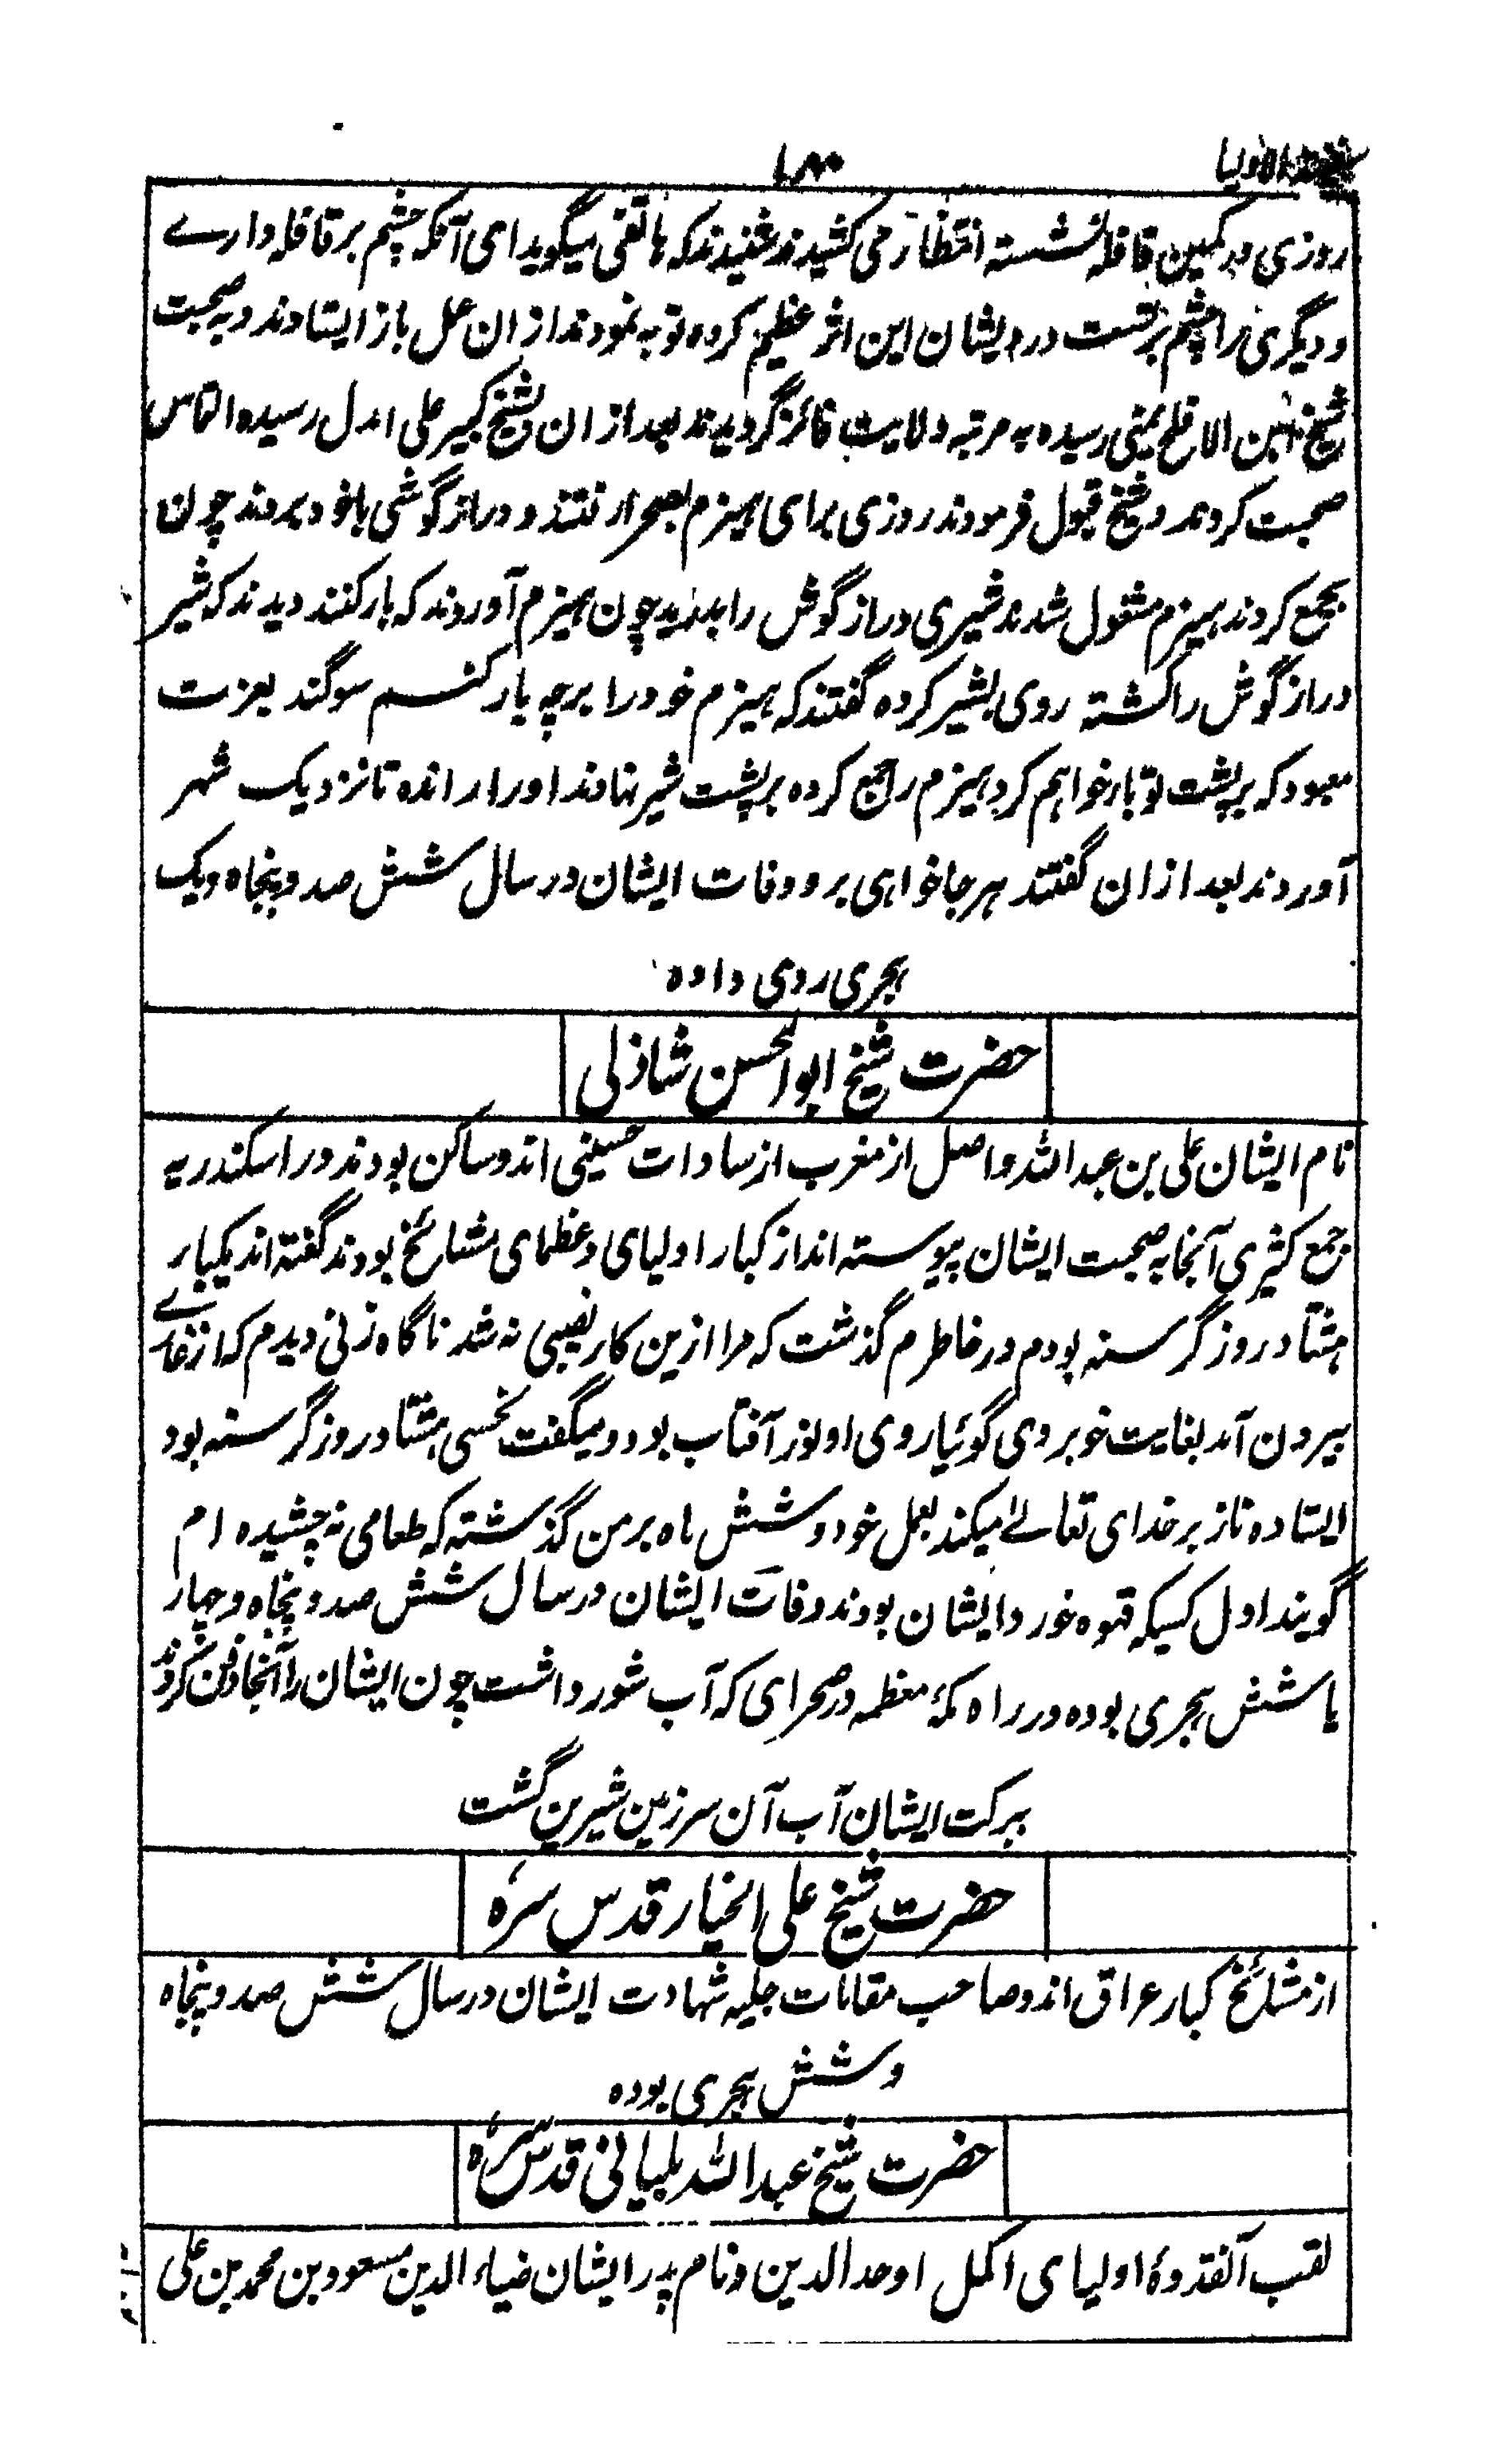 سفینۃ الاولیا
۱۸۰
روزی در کمین قافلہ نشستہ انتظار می کشیدند شنیدند کہ ہاتفی میگوید ای آنکہ چشم بر قافلہ دارے
و دیگری را چشم بر تست در ایشان این اثر عظیم کردہ توبہ نمودند از ان عمل باز ایستادند و بہ صحبت
شیخ ابن الافلح یمنی رسیدہ بہ مرتبہ ولایت فائز گردیدند بعد از ان بشیخ کبیر علی اہدل رسیدہ التماس
صحبت کردند و شیخ قبول فرمودند روزی برای ہیزم بصحرا رفتند و دراز گوشی باخود بردند چون
بجمع کردن ہیزم مشغول شدند شیری دراز گوش را بدرید چون ہیزم آوردند کہ بار کنند دیدند کہ شیر
دراز گوش را کشتہ روی بشیر کردہ گفتند کہ ہیزم خود را برچہ بار کنم سوگند بعزت
معبود کہ بر پشت تو بار خواہم کرد ہیزم را جمع کردہ بر پشت شیر نہادند و او را راندہ تا نزدیک شہر
آوردند بعد از ان گفتند ہر جا خواہی برو وفات ایشان در سال شش صد و پنجاہ و یک
ہجری روی دادہ
حضرت شیخ ابوالحسن شاذلی
نام ایشان علی بن عبداللہ و اصل از مغرب از سادات حسینی اند و ساکن بودند در اسکندریہ
جمع کثیری آنجا بہ صحبت ایشان پیوستہ اند از کبار اولیای و عظمای مشائخ بودند گفتہ اند یکبار
ہشتاد روز گرسنہ بودم در خاطرم گذشت کہ مرا ازین کار نصیبی نہ شد ناگاہ زنی دیدم کہ از غارے
بیرون آمد بغایت خوبروی گوئیا روی او نور آفتاب بود و میگفت نحسی ہشتاد روز گرسنہ بود
ایستادہ ناز بر خدای تعالےٰ میکند بعمل خود و شش ماہ بر من گذشتہ کہ طعامی نہ چشیدہ ام
گویند اول کسیکہ قہوہ خورد ایشان بودند وفات ایشان در سال شش صد و پنجاہ و چہار
یا شش ہجری بودہ در راہ مکۂ معظمہ در صحرای کہ آب شور داشت چون ایشان را آنجا دفن کردند
ببرکت ایشان آب آن سرزمین شیرین گشت
حضرت شیخ علی الخیار قدس سرہ
از مشائخ کبار عراق اند و صاحب مقامات جلیہ شہادت ایشان در سال شش صد و پنجاہ
و شش ہجری بودہ
حضرت شیخ عبداللہ بلیانی قدس سرہ
لقب آنقدوۂ اولیای اکمل اوحد الدین و نام پدر ایشان ضیاء الدین مسعود بن محمد بن علی